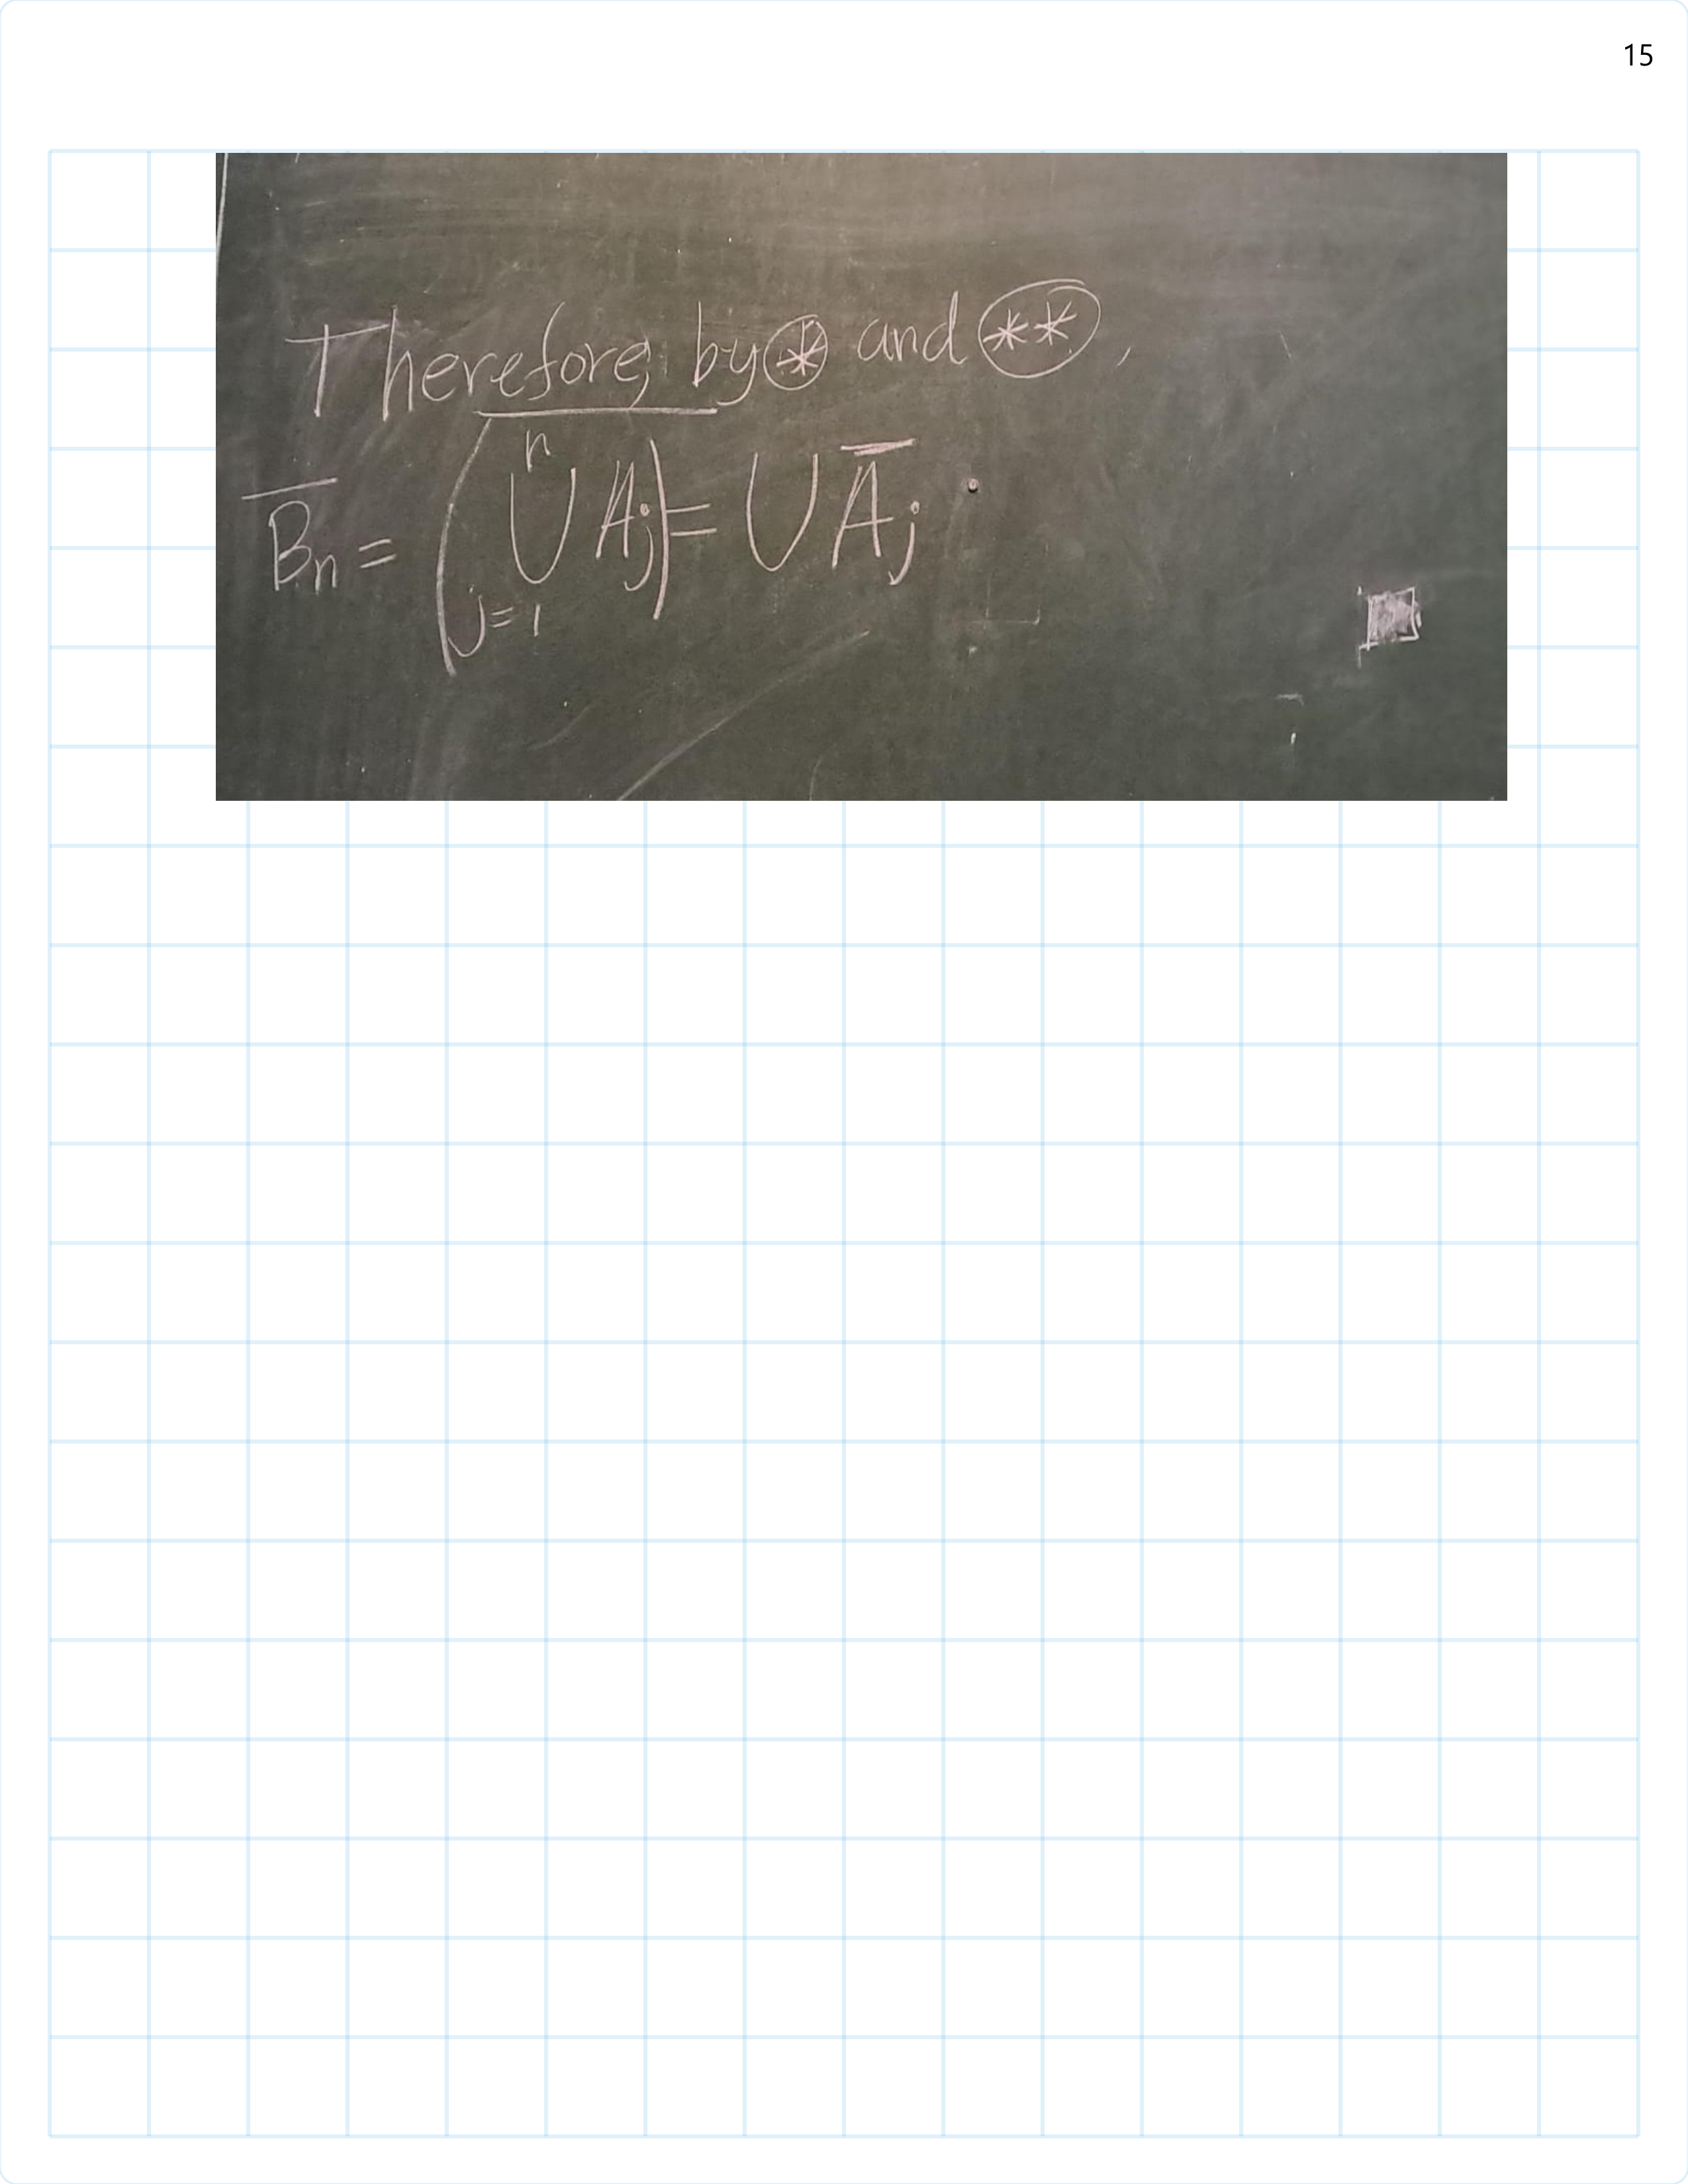 15
Therefore, by ⊛ and (**),
$\overline{B_n} = \overline{\left(\bigcup_{j=1}^{n} A_j\right)} = \bigcup \overline{A_j}$.